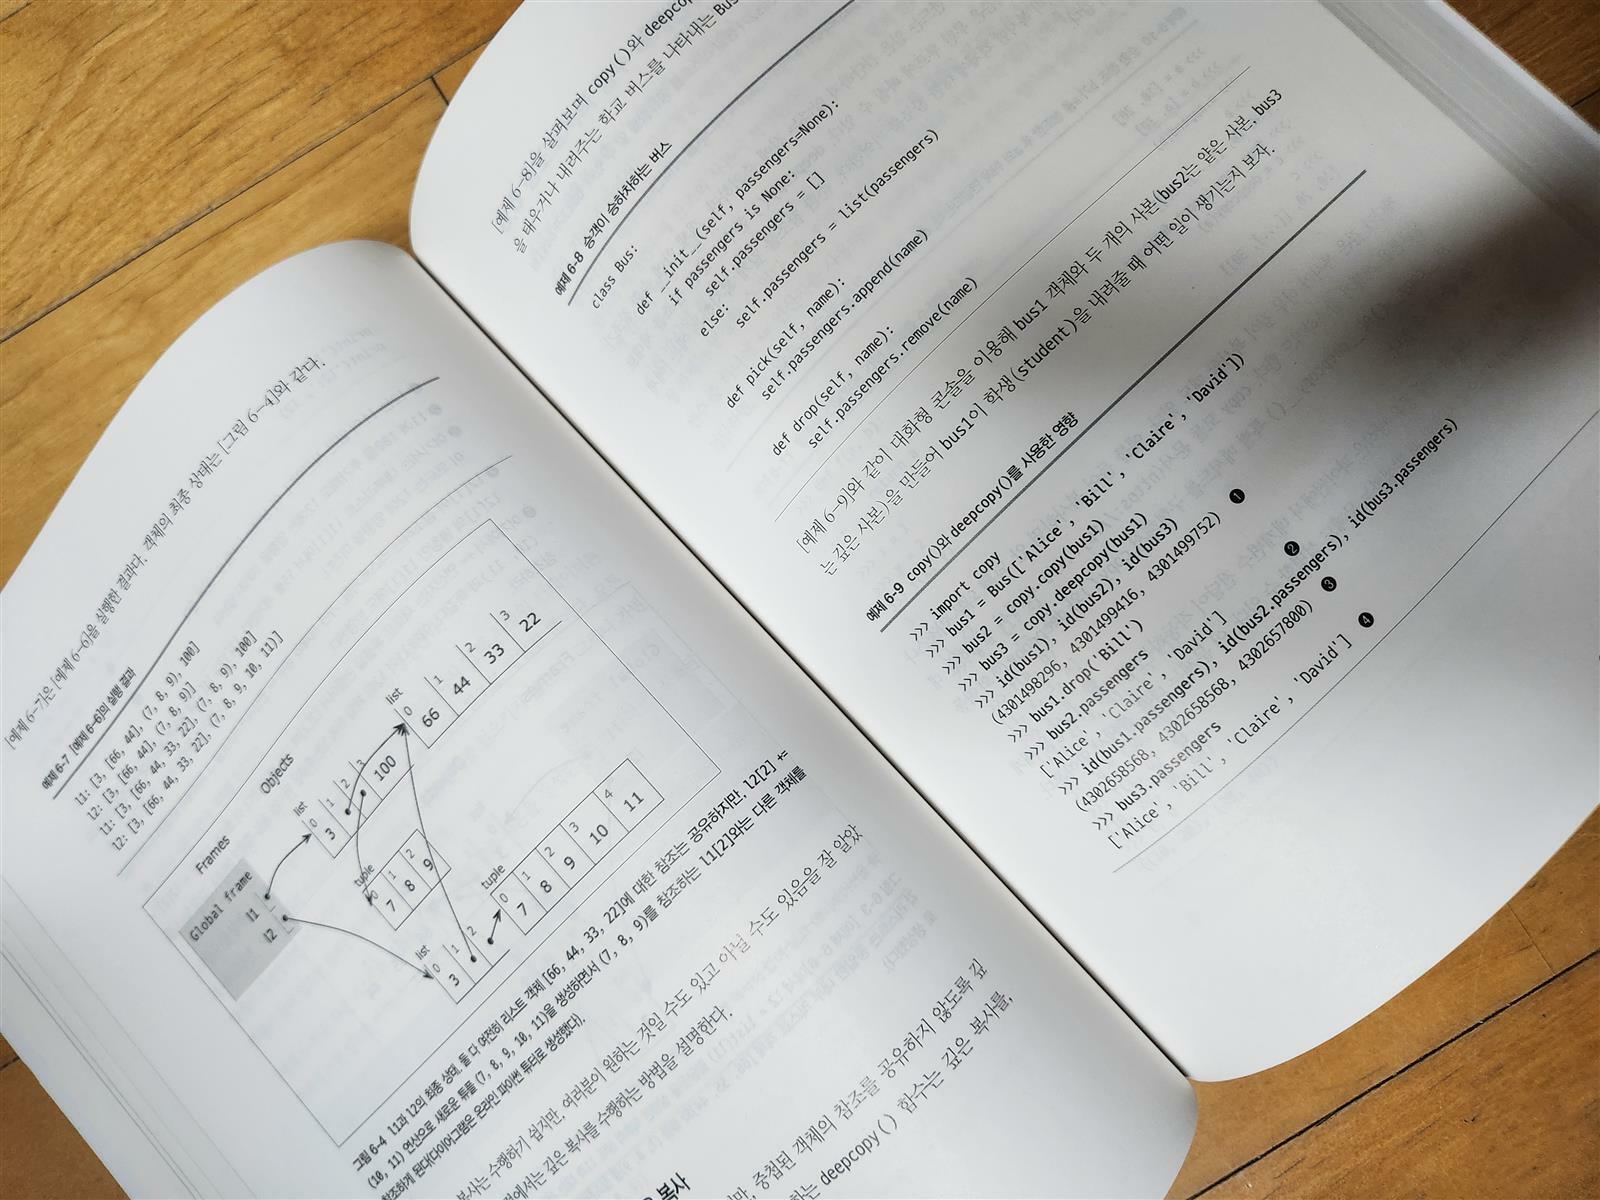 [예제 6-7]은 [예제 6-6]을 실행한 결과다. 객체의 최종 상태는 [그림 6-4]와 같다.
예제 6-7 [예제 6-6]의 실행 결과
l1: [3, [66, 44], (7, 8, 9), 100]
l2: [3, [66, 44], (7, 8, 9)]
l1: [3, [66, 44, 33, 22], (7, 8, 9), 100]
l2: [3, [66, 44, 33, 22], (7, 8, 9, 10, 11)]
Frames
Objects
Global frame
l1
l2
list
0 1 2 3
3 100
list
0 1 2 3
66 44 33 22
tuple
0 1 2
7 8 9
list
0 1 2
3
tuple
0 1 2 3 4
7 8 9 10 11
그림 6-4 l1과 l2의 최종 상태. 둘 다 여전히 리스트 객체 [66, 44, 33, 22]에 대한 참조는 공유하지만, l2[2] +=
(10, 11) 연산으로 새로운 튜플 (7, 8, 9, 10, 11)을 생성하면서 (7, 8, 9)를 참조하는 l1[2]와는 다른 객체를
참조하게 된다(다이어그램은 온라인 파이썬 튜터로 생성했다).
복사는 수행하기 쉽지만, 여러분이 원하는 것일 수도 있고 아닐 수도 있음을 잘 알았
에서는 깊은 복사를 수행하는 방법을 설명한다.
복사
만, 중첩된 객체의 참조를 공유하지 않도록 깊
하는 deepcopy() 함수는 깊은 복사를,
[예제 6-8]을 살펴보며 copy()와 deepcopy
을 태우거나 내려주는 학교 버스를 나타내는 Bus
예제 6-8 승객이 승하차하는 버스
class Bus:
def __init__(self, passengers=None):
if passengers is None:
self.passengers = []
else:
self.passengers = list(passengers)
def pick(self, name):
self.passengers.append(name)
def drop(self, name):
self.passengers.remove(name)
[예제 6-9]와 같이 대화형 콘솔을 이용해 bus1 객체와 두 개의 사본(bus2는 얕은 사본, bus3
는 깊은 사본)을 만들어 bus1이 학생(student)을 내려줄 때 어떤 일이 생기는지 보자.
예제 6-9 copy()와 deepcopy()를 사용한 영향
>>> import copy
>>> bus1 = Bus(['Alice', 'Bill', 'Claire', 'David'])
>>> bus2 = copy.copy(bus1)
>>> bus3 = copy.deepcopy(bus1)
>>> id(bus1), id(bus2), id(bus3)
(4301498296, 4301499416, 4301499752) ❶
>>> bus1.drop('Bill')
>>> bus2.passengers
['Alice', 'Claire', 'David'] ❷
>>> id(bus1.passengers), id(bus2.passengers), id(bus3.passengers)
(4302658568, 4302658568, 4302657800) ❸
>>> bus3.passengers
['Alice', 'Bill', 'Claire', 'David'] ❹